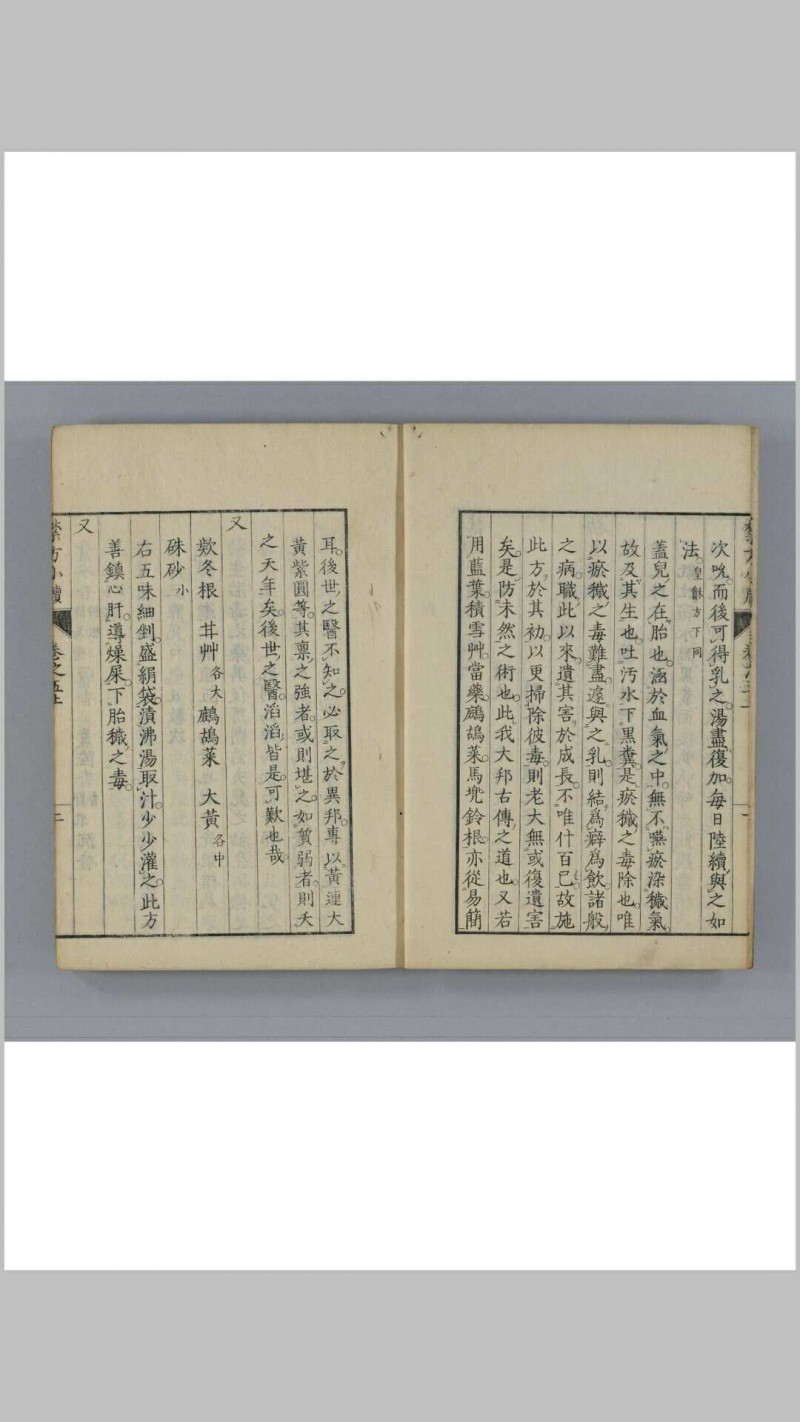 次吮而後可得乳之湯盡復加每日陸續與之如
法皇獻方下同
蓋兒之在胎也涵於血氣之中無不嚥瘀染穢氣
故及其生也吐汚水下黑糞是瘀穢之毒除也唯
以瘀穢之毒難盡遽與之乳則結爲癖爲飲諸般
之病職此以來遺其害於成長不唯什百已故施
此方於其初以更掃除彼毒則老大無或復遺害
矣是防未然之術也此我大邦古傳之道也又若
用藍葉積雪艸當藥鷓鴣菜馬兜鈴根亦從易簡
耳後世之醫不知之必取之於異邦專以黃連大
黃紫圓等其稟之強者或則堪之如質弱者則夭
之天年矣後世之醫滔滔皆是可歎也哉
又
欵冬根 甘艸各大 鷓鴣菜 大黃各中
硃砂小
右五味細剉盛絹袋漬沸湯取汁少少灌之此方
善鎮心肝導燥屎下胎穢之毒
又
禁方小牘 卷之五上 二